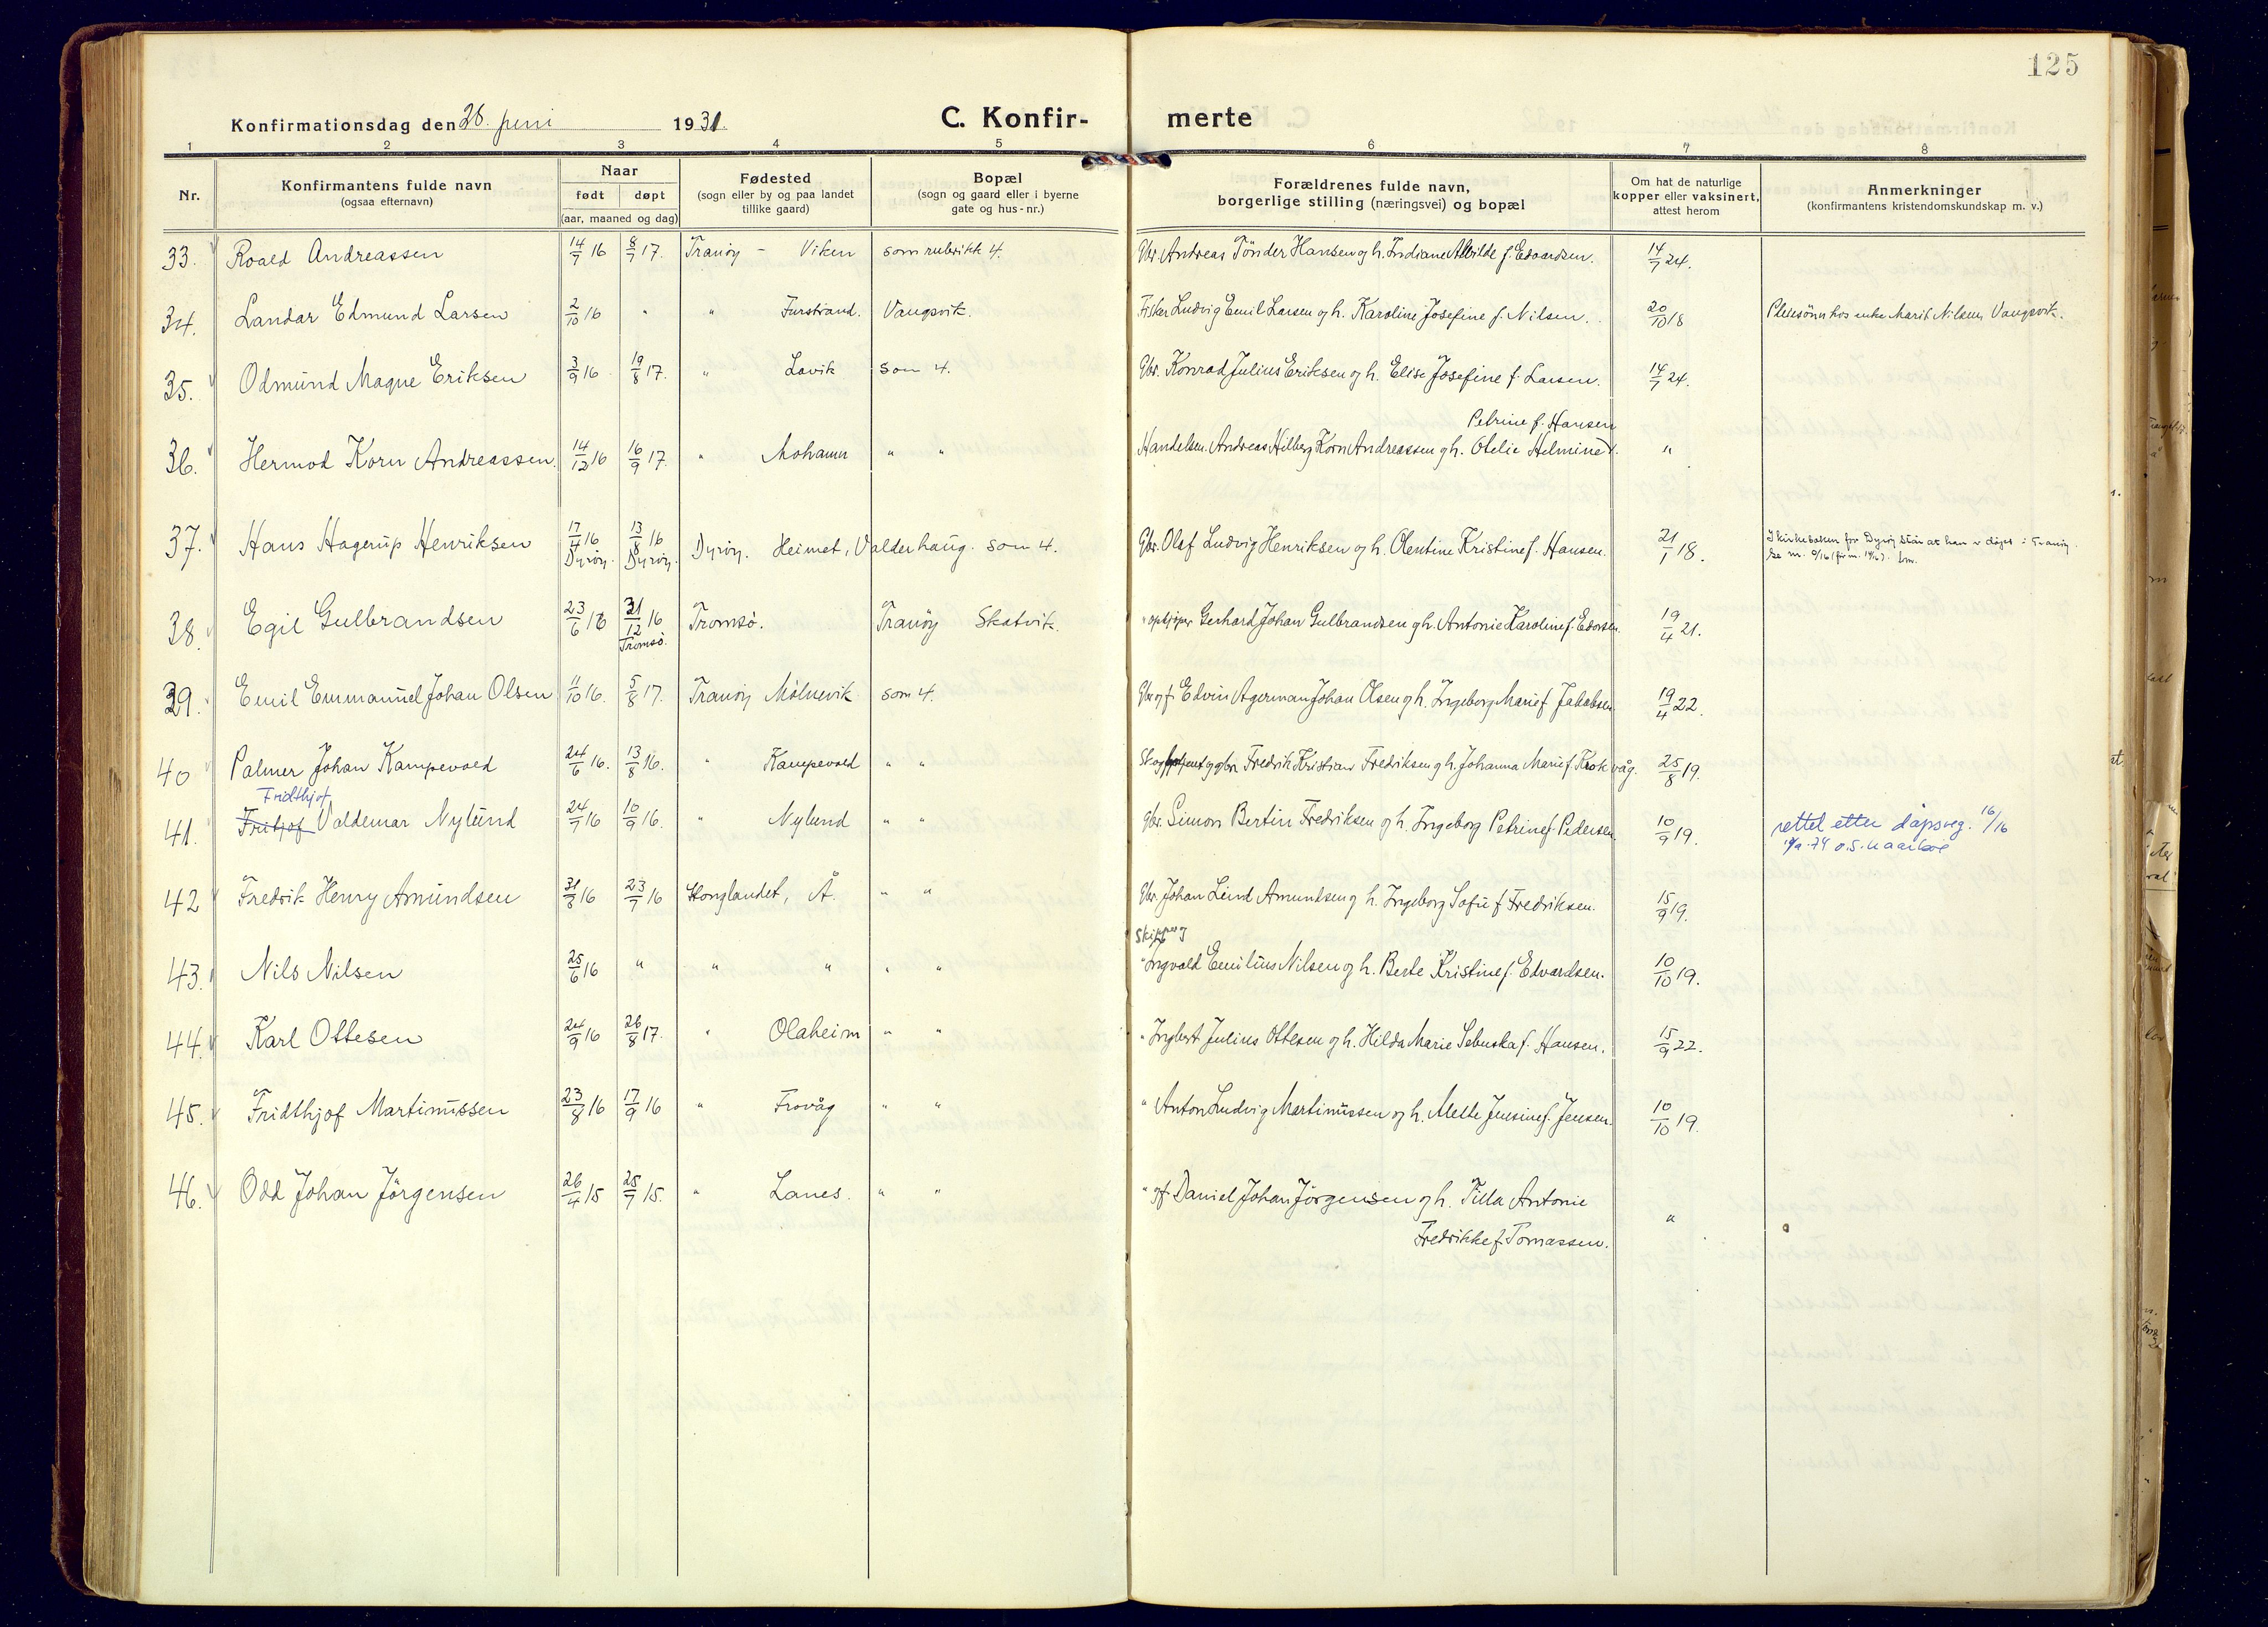 125
Konfirmationsdag den 28. juni 1931.
C. Konfir- merte
1 2 3 4 5 6 7 8
Nr.
Konfirmantens fulde navn
(ogsaa efternavn)
Naar
født døpt
(aar, maaned og dag)
Fødested
(sogn eller by og paa landet
tillike gaard)
Bopæl
(sogn og gaard eller i byerne
gate og hus-nr.)
Forældrenes fulde navn,
borgerlige stilling (næringsvei) og bopæl
Om hat de naturlige
kopper eller vaksinert,
attest herom
Anmerkninger
(konfirmantens kristendomskundskap m. v.)
33. Roald Andreassen 14/7 16 8/7 17. Tranöy - Viken som rubrikk 4. Gbr. Andreas Tönder Hansen og h. Indiane Alvilde f. Edvardsen. 14/7 24.
34. Landar Edmund Larsen 2/10 16 " " Furstrand. Vangsvik. Fisker Ludvig Emil Larsen og h. Karoline Josefine f. Nilsen. 20/10 18 Pleiesönn hos enke Marit Nilsen, Vangsvik.
35. Odmund Magne Eriksen 3/9 16 19/8 17. " Lavik som 4. Gbr. Konrad Julius Eriksen og h. Elise Josefine f. Larsen. 14/7 24.
Petrine f. Hansen
36. Hermod Korn Andreassen. 14/12 16 16/9 17. " Mohamn " " Handelsm. Andreas Hilberg Korn Andreassen og h. Otelie Helmine "
37. Hans Hagerup Henriksen 17/4 16 Dyröy. 13/8 16 Dyröy. Dyröy. Heimet, Valderhaug. som 4. Gbr. Olaf Ludvig Henriksen og h. Olentine Kristine f. Hansen. 21/1 18. I kirkeboken for Dyröy står at han er döpt i Tranöy.
38. Egil Gulbrandsen 23/6 16 31/12 16 Tromsö. Tromsö. Tranöy Skatvik. " Gerhard Johan Gulbrandsen og h. Antonie Karoline f. Edorsen. 19/4 21.
39. Emil Emmanuel Johan Olsen 11/10 16. 5/8 17. Tranöy Mölnevik som 4. Gbr og f. Edvin Agerman Johan Olsen og h. Ingeborg Marie f. Jakobsen 19/4 22.
40 Palmer Johan Kampevold 24/6 16. 13/8 16. " Kampevold " " Fredrik Kristian Fredriksen og h. Johanna Marie f. Krokvåg. 25/8 19.
Fridthjof
41. Fritjof Valdemar Nylund 24/7 16 10/9 16. " Nylund " " Gbr. Simon Bertin Fredriksen og h. Ingeborg Petrine f. Pedersen. 10/9 19. rettet etter dåpsreg. 16/16
42 Fredrik Henry Amundsen 31/3 16 23/7 16 Stonglandet, Å. " " Gbr. Johan Leind Amundsen og h. Ingeborg Sofie f. Fredriksen. 15/9 19.
Skipper I
43. Nils Nilsen 25/6 16 " " " " " " Ingvald Emilius Nilsen og h. Berte Kristine f. Edvardsen. 10/10 19.
44. Karl Ottesen 24/9 16 26/8 17. " Olaheim " " " Ingbert Julius Ottesen og h. Hilda Marie Sebuska f. Hansen. 15/9 22.
45. Fridthjof Martinussen 23/8 16 17/9 16 " Frovåg " " " Anton Ludvig Martinussen og h. Mette Jensine f. Jensen. 10/10 19.
46. Odd Johan Jörgensen 26/4 15 25/7 15. " Lanes. " " " og f. Daniel Johan Jörgensen og h. Tilla Antonie "
Fredrikke f. Tomassen.